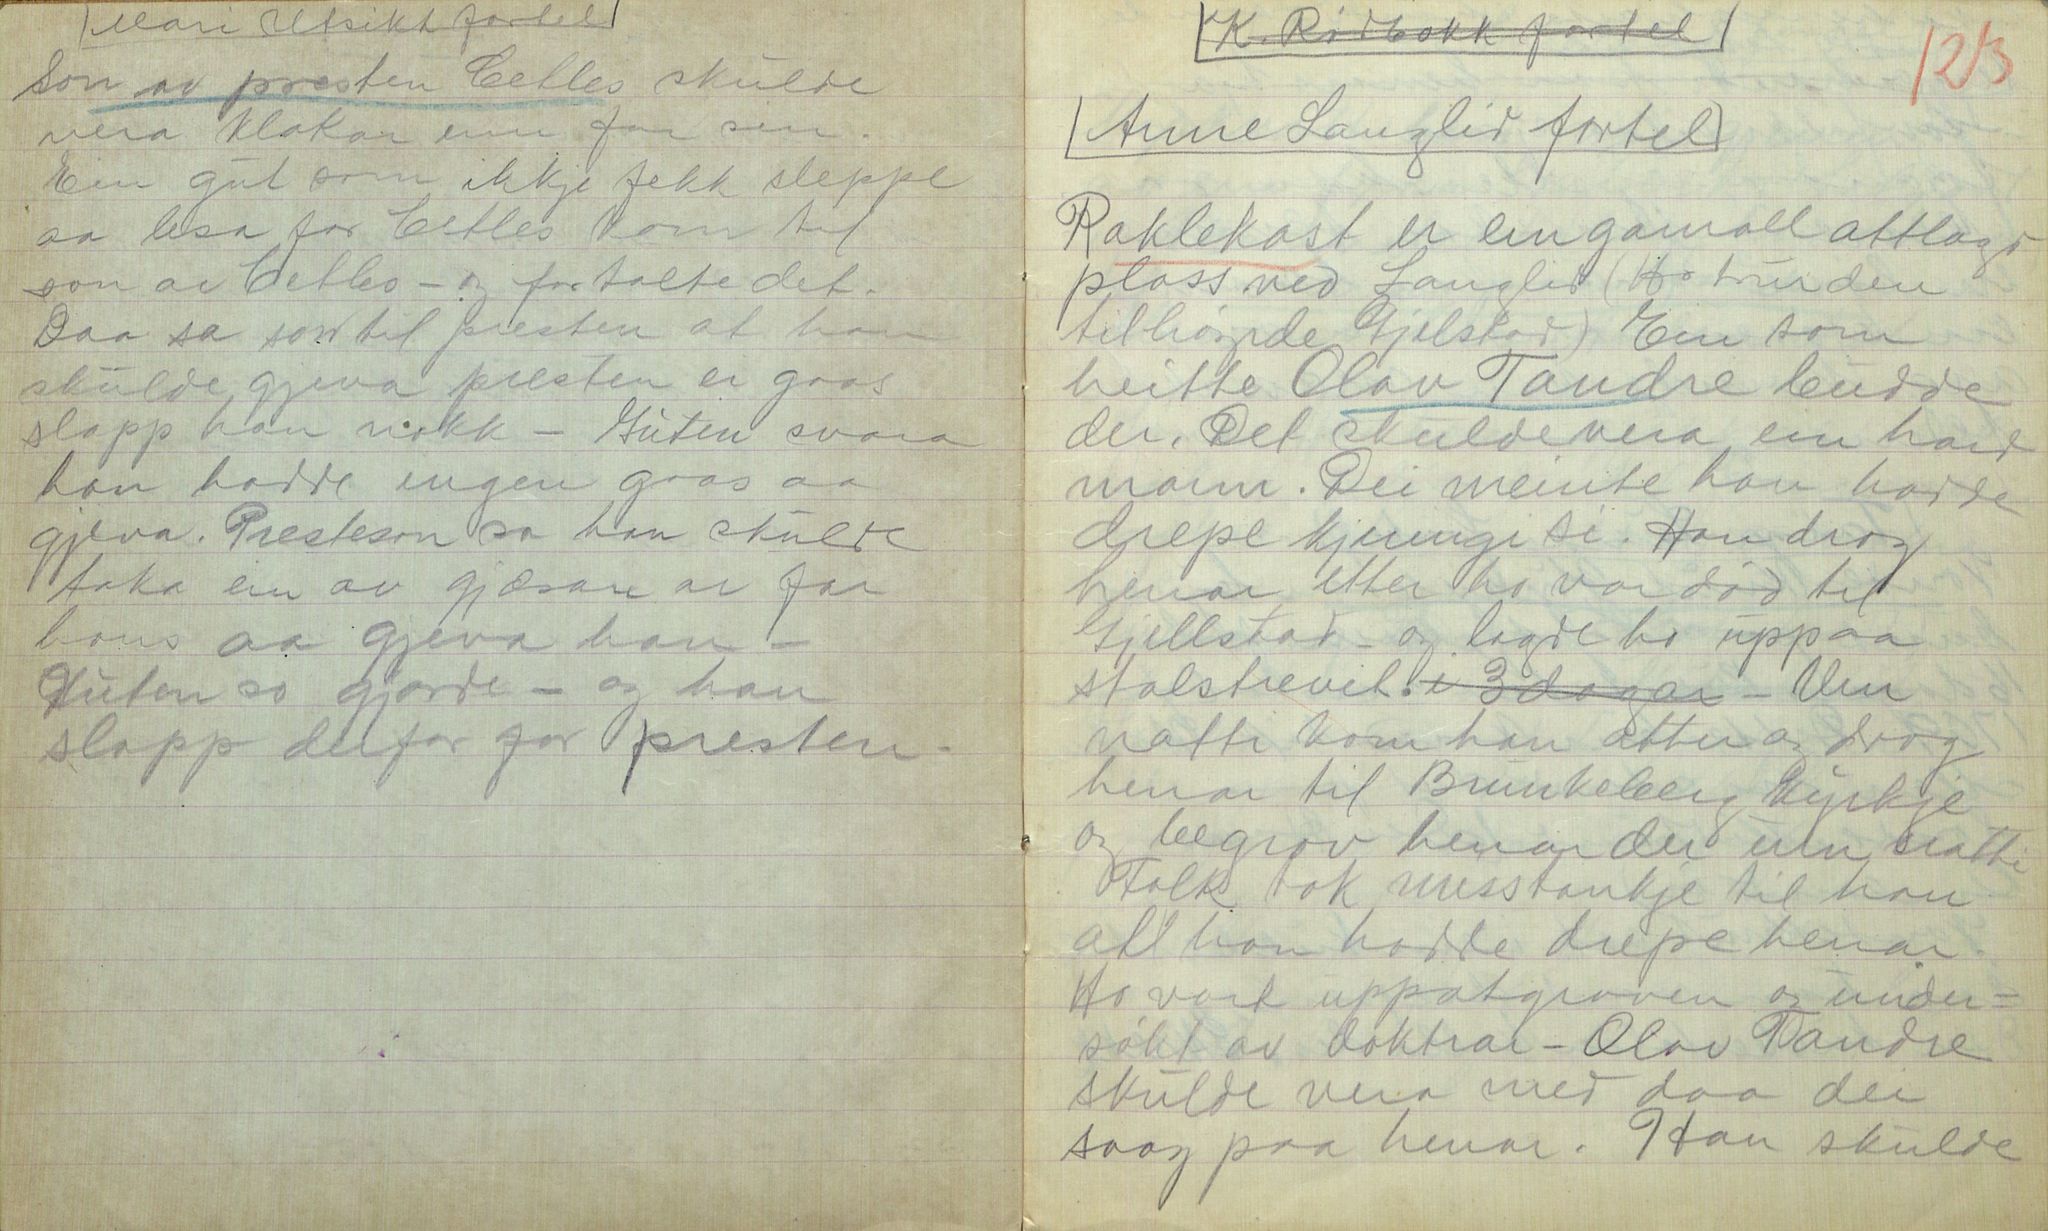 Mari Utsikt fortel
Son av presten Cetles skulde
vera klokar enn far sin.
Ein gut som ikkje fekk sleppe
aa lesa for Cetles kom til
son av Cetles – og fortalte det.
Daa sa son til presten at han
skulde gjeva presten ei gaas
slapp han nokk – Guten svara
han hadde ingen gaas aa
gjeva. Presteson sa han skulde
taka ein av gjæsane av far
hans aa gjeva han –
Guten so gjorde – og han
slapp derfor for presten.
K. Ridbokk fortel
123
Anne Langlid fortel
Raklekast er ein gamall attlagd
plass ved Langlid (
tilhøyrde Gjelstad) Ein som
heitte Olav Tandre budde
der. Det skulde vera ein hard
mann. Dei meinte han hadde
drepe kjeringi si. Han drog
henar etter ho var död til
Gjellstad – og lagde ho uppaa
stalstrevet. i 3 dagar – Um
natti kom han atter og drog
henar til Brunkeberg Kyrkje
og begrov henar der um natti
Folk tok misstankje til han
att han hadde drepe henar.
Ho vart uppatgraven og under-
sökt av doktrar – Olav Tandre
skulde vera med daa dei
saag paa henar. Han skulde